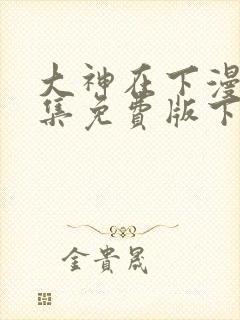 大神在下漫
集免费版下
金貴晟